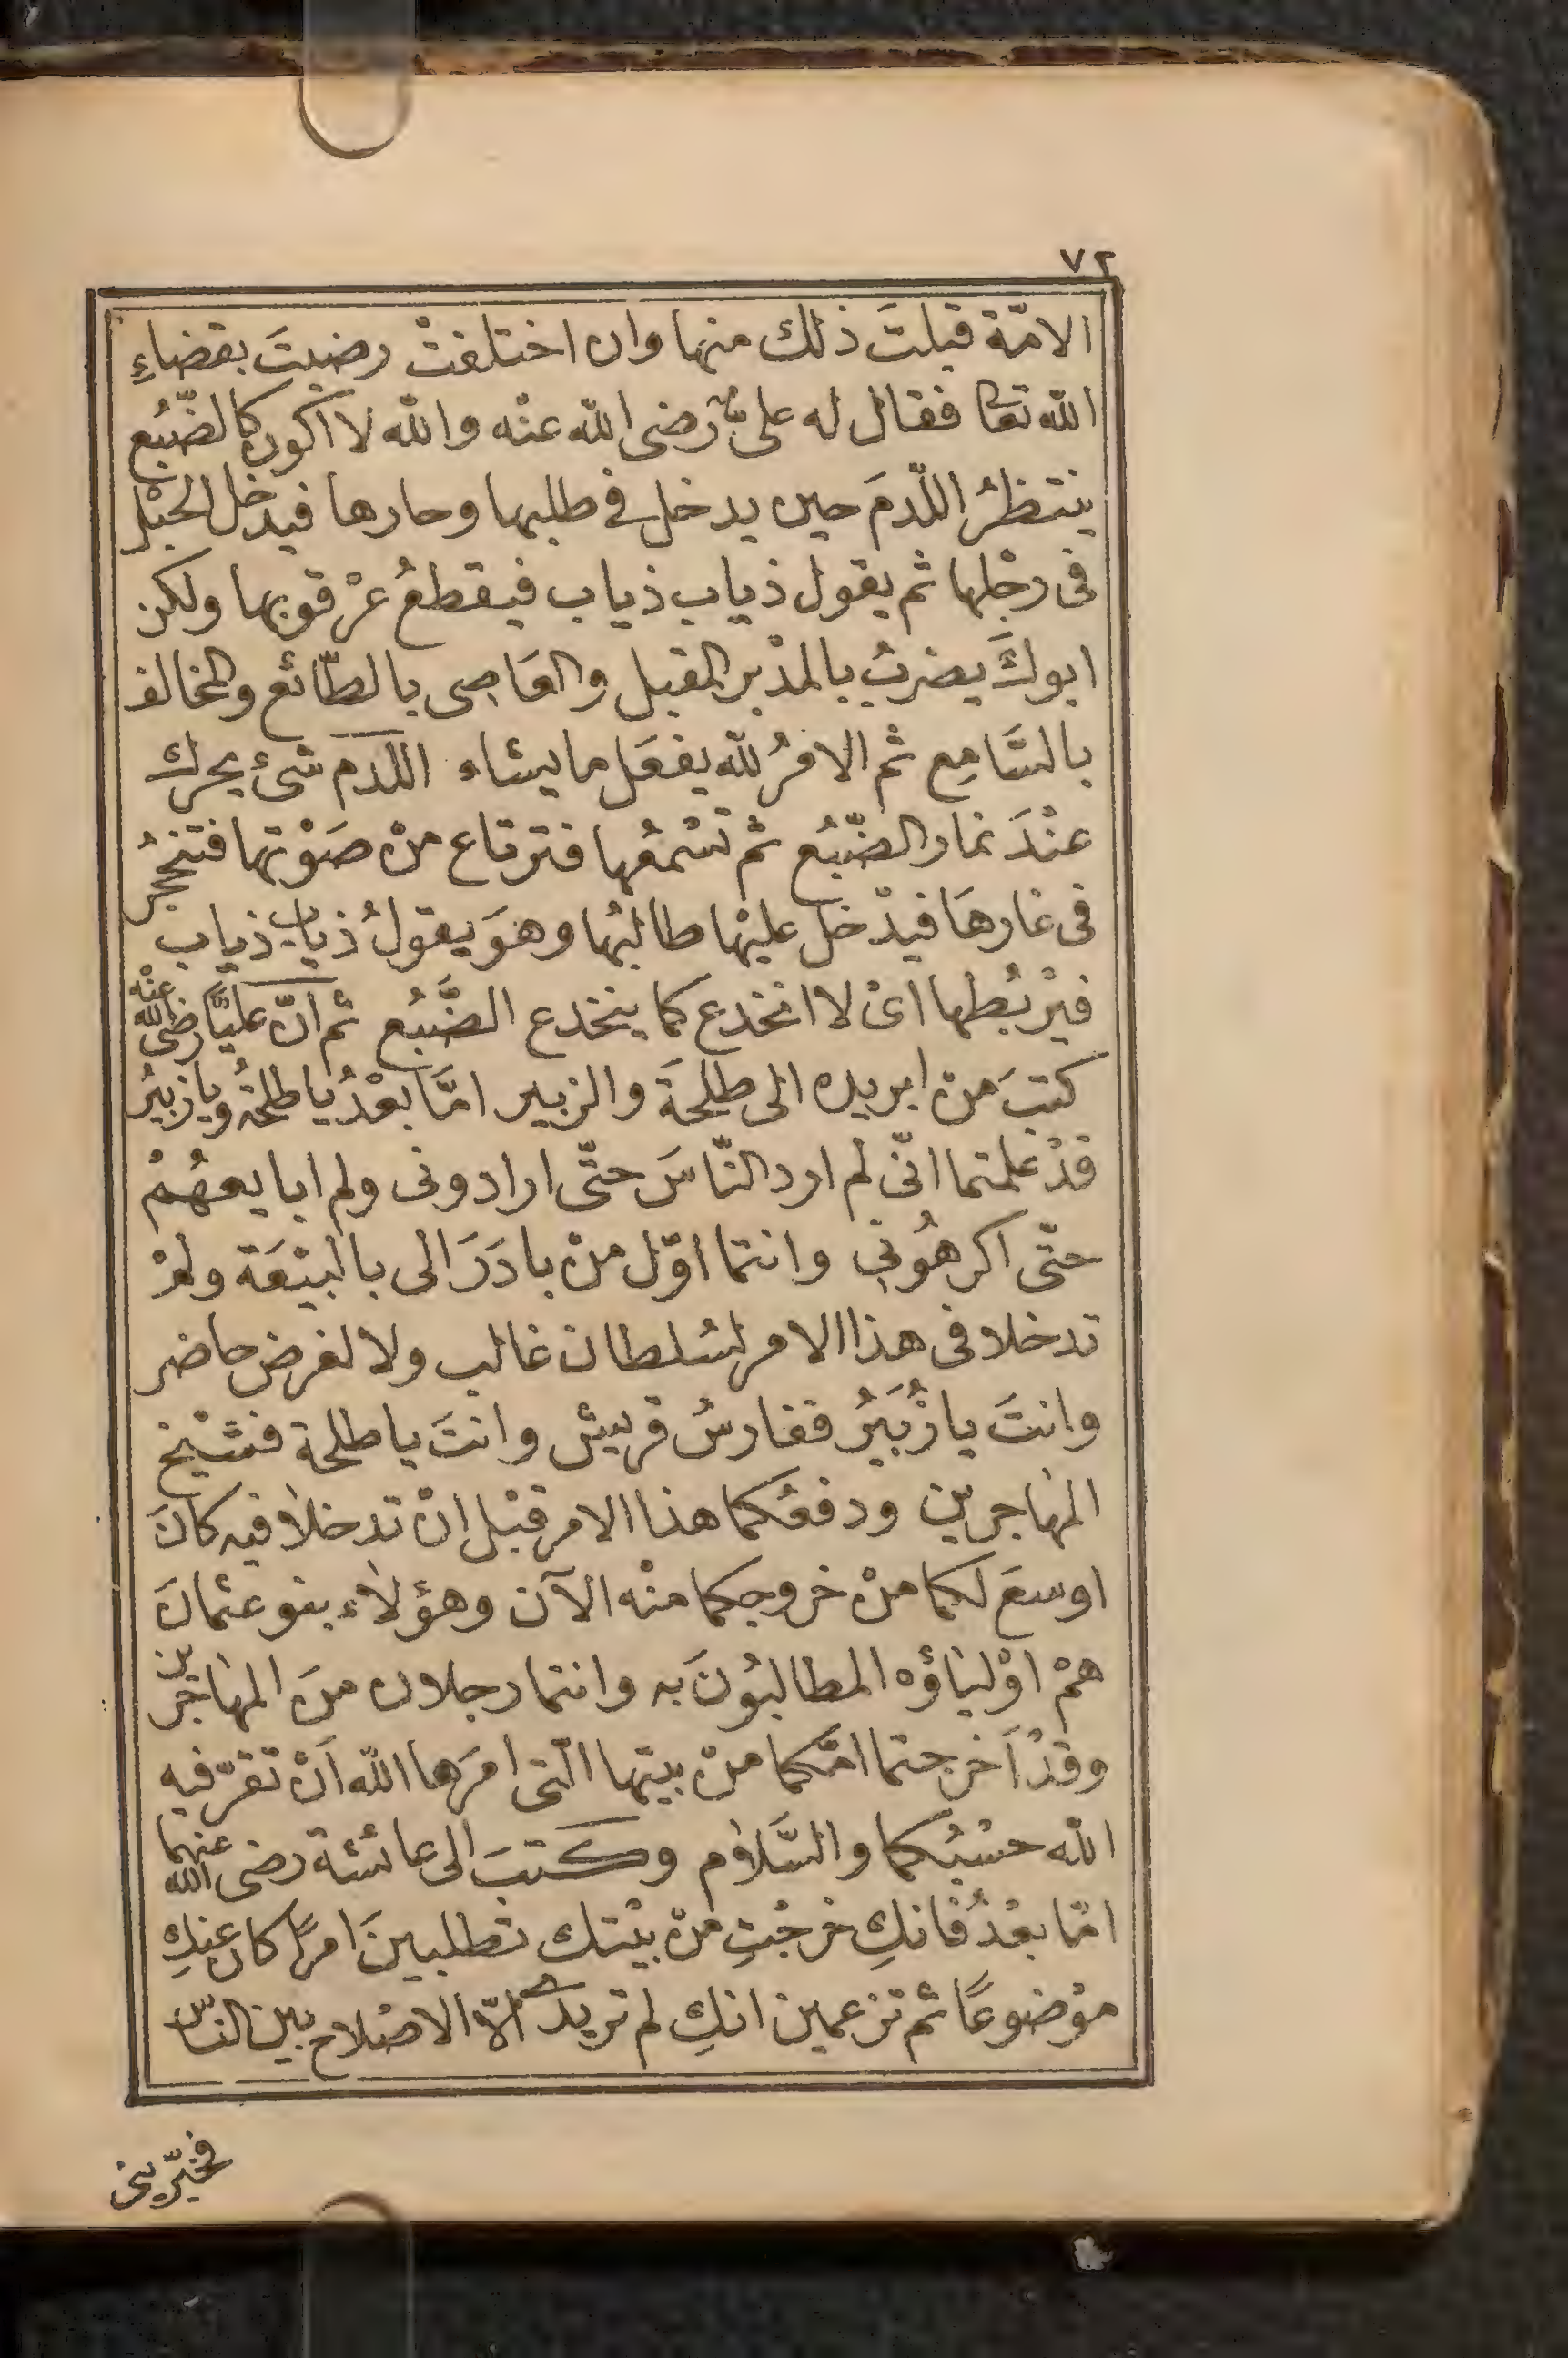 ٧٢
الامّة قبلتَ ذلك منها وان اختلفتْ رضيتَ بقضاءِ
الله تعا فقال له علىّ رضى الله عنْه والله لا اكون كالضّبُع
ينتظرُ اللّدمَ حين يدخل فى طلبها وحارها فيدخل الحبْل
فى رجْلها ثم يقول ذياب ذياب فيقطعُ عرْقوبها ولكن
ابوكَ يضربُ بالمدْبر المقبل والعَاصِى بالطّائع والمخالف
بالسَّامِع ثم الامْرُ لله يفعَل ما يشاء اللّدم شئ يحرك
عنْدَ غار الضّبُع ثم تسْمعُها فترتاع منْ صَوْتها فتنجحرُ
فى غارهَا فيدْخل عليْها طالبُها وهوَ يقولُ ذياب ذياب
فيرْبُطها اىْ لا انخدع كما ينخدع الضَّبُع ثم انّ عليًّا رضى الله عنْه
كتبَ منْ ابريده الى طلحَةَ والزبير امَّا بعْدُ يا طلحةُ ويا زبيرُ
قدْ علمْتما انّى لم ارد النّاسَ حتّى ارادونى ولم ابايعهُمْ
حتّى اكرهُونِى وانتما اوّل منْ بادَرَ الى بالبيْعَة ولمْ
تدخلا فى هذا الامر لسُلطان غالب ولا لغرض حاضر
وانتَ يا زُبَيَرُ ففارسُ قريش وانتَ يا طلحة فشيْخ
المهاجرين ودفعُكما هذا الامر قبْل انْ تدخلا فيه كانَ
اوسعَ لكما منْ خروجكما منْه الآن وهؤلاء بنو عثمانَ
همْ اوْلياؤه المطالبُونَ به وانتما رجلان منَ المهاجرين
وقدْ اَخرجتما امّكما منْ بيتها الّتى امرَها الله اَنْ تقرّ فيه
الله حسْبُكما والسَّلام وكتبَ الى عائشة رضى الله عنهما
امّا بعْدُ فانكِ خرجْتِ منْ بيْتك تطلبينَ امرًا كان عنكِ
موْضوعًا ثم تزعمين انكِ لم تريدى الّا الاصْلاح بين النّاس
فخبّرينى